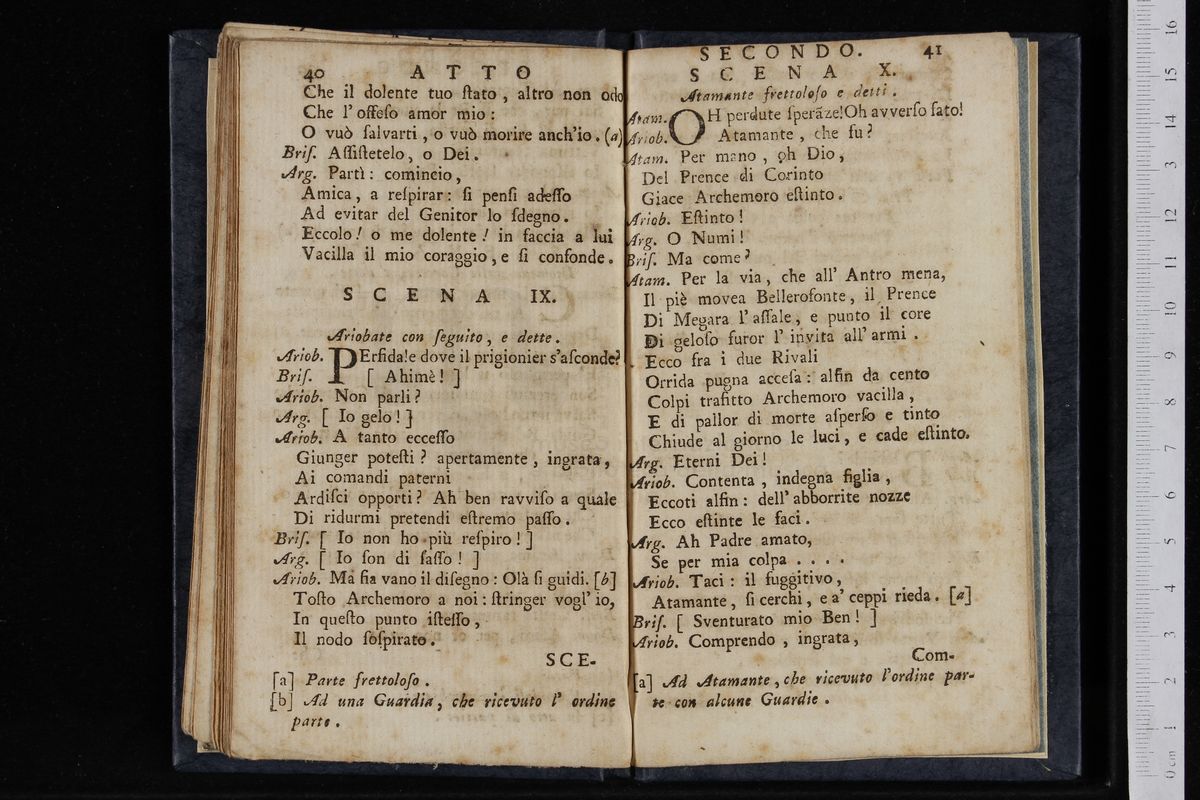 40 ATTO
Che il dolente tuo ſtato , altro non odo
Che l' offeſo amor mio :
O vuò ſalvarti , o vuò morire anch'io . (a)
Briſ. Aſſiſtetelo, o Dei .
Arg. Partì : comincio ,
Amica , a reſpirar : ſi penſi adeſſo
Ad evitar del Genitor lo ſdegno .
Eccolo ! o me dolente ! in faccia a lui
Vacilla il mio coraggio , e ſi confonde .
SCENA IX.
Ariobate con ſeguito , e dette .
Ariob. PErfida!e dove il prigionier s'aſconde?
Briſ. [ Ahimè ! ]
Ariob. Non parli ?
Arg. [ Io gelo ! ]
Ariob. A tanto ecceſſo
Giunger poteſti ? apertamente , ingrata ,
Ai comandi paterni
Ardiſci opporti ? Ah ben ravviſo a quale
Di ridurmi pretendi eſtremo paſſo .
Briſ. [ Io non ho più reſpiro ! ]
Arg. [ Io ſon di ſaſſo ! ]
Ariob. Ma ſia vano il diſegno : Olà ſi guidi. [b]
Toſto Archemoro a noi : ſtringer vogl' io,
In queſto punto iſteſſo ,
Il nodo ſoſpirato .
SCE-
[a] Parte frettoloſo .
[b] Ad una Guardia, che ricevuto l' ordine
parte .
SECONDO. 41
SCENA X.
Atamante frettoloſo e detti .
Atam. OH perdute ſperãze!Oh avverſo fato!
Ariob. Atamante , che fu ?
Atam. Per mano , oh Dio ,
Del Prence di Corinto
Giace Archemoro eſtinto .
Ariob. Eſtinto !
Arg. O Numi !
Briſ. Ma come ?
Atam. Per la via , che all' Antro mena,
Il piè movea Bellerofonte , il Prence
Di Megara l' aſſale , e punto il core
Di geloſo furor l' invita all' armi .
Ecco fra i due Rivali
Orrida pugna acceſa : alfin da cento
Colpi trafitto Archemoro vacilla ,
E di pallor di morte aſperſo e tinto
Chiude al giorno le luci , e cade eſtinto.
Arg. Eterni Dei !
Ariob. Contenta , indegna figlia ,
Eccoti alfin : dell' abborrite nozze
Ecco eſtinte le faci .
Arg. Ah Padre amato,
Se per mia colpa . . . .
Ariob. Taci : il fuggitivo ,
Atamante , ſi cerchi , e a' ceppi rieda . [a]
Briſ. [ Sventurato mio Ben ! ]
Ariob. Comprendo , ingrata ,
Com-
[a] Ad Atamante , che ricevuto l'ordine par-
te con alcune Guardie .
0 cm 1 2 3 4 5 6 7 8 9 10 11 12 3 14 15 16